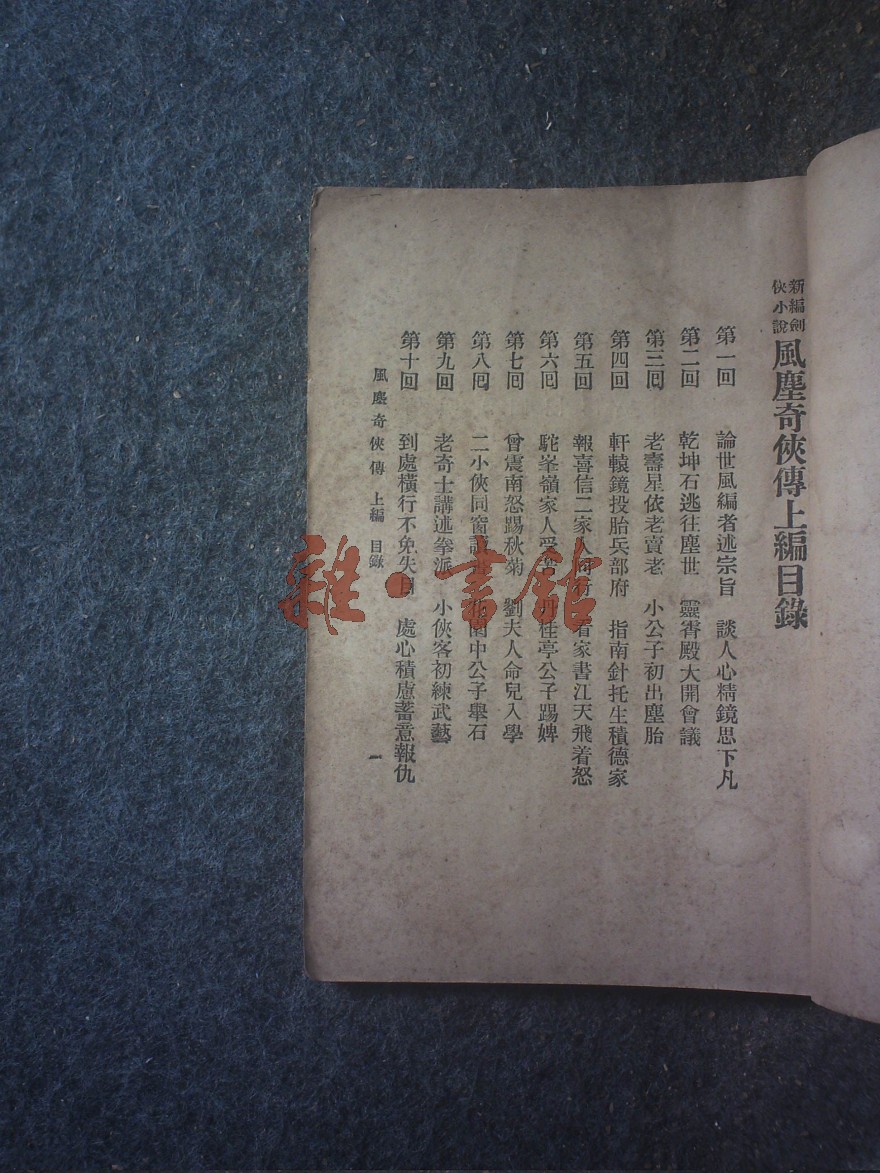 新編劍
俠小說
風塵奇俠傳上編目錄
第一回 論世風編者述宗旨 談人心精鏡思下凡
第二回 乾坤石逃往塵世 靈霄殿大開會議
第三囘 老壽星依老賣老 小公子初出塵胎
第四囘 軒轅鏡投胎兵部府 指南針托生積德家
第五回 報喜信二家人同行 看家書江天飛着怒
第六囘 駝峯嶺家人受 丹桂亭公子踢婢
第七囘 曾震南怒踢秋菊 劉夫人命兒入學
第八囘 二小俠同窗讀書 花園中公子舉石
第九囘 老奇士講述拳派 小俠客初練武藝
第十回 到處橫行不免失 處心積慮蓄意報仇
風塵奇俠傳 上編 目錄
一
雜·書館